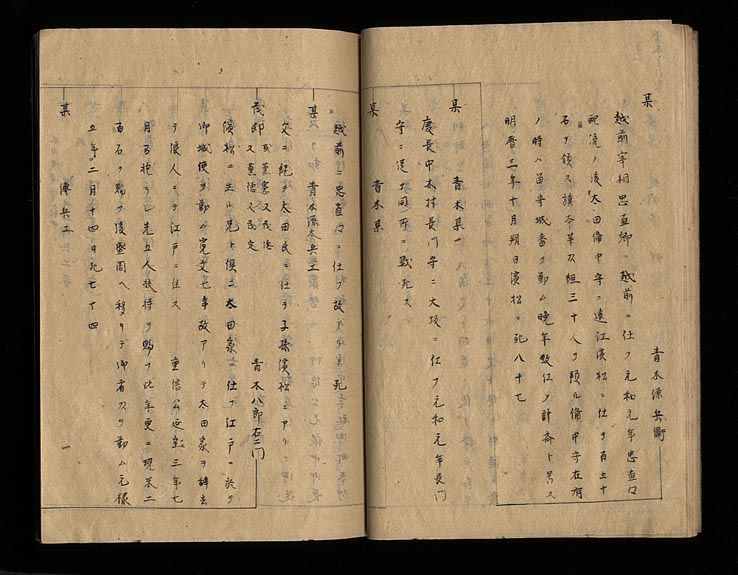 某 青木源兵衛
越前宰相忠直卿ニ越前ニ仕フ元和元年忠直卿
配流ノ後太田備中守ニ遠江濱松ニ仕フ百五十
石ヲ領ス旗本并足組三十人ヲ預ル備中守在府
ノ時ハ留守城番ヲ勤ム晩年致仕ヲ計斎ト号ス
明暦三年十月朔日濱松ニ死八十七
某 青木某
慶長中木村長門守ニ大坂ニ仕フ元和元年長門
守ニ従ヒ同所ニ戦死ス
某 青木某
越前ニ忠直卿ニ仕フ故 死
某 青木源太兵エ
父ニ紀テ太田氏ニ仕フ子孫濱松ニアリ
茂卿 或 又茂忠 又重徳又茂定 青木八郎右エ門
濱松ニ生ル兄ト俱ニ太田家ニ仕フ江戸ニ於テ
御城使ヲ勤ム寛文七年故アリテ太田家ヲ辞去
テ浪人シテ江戸ニ住ス 重信公延宝三年七
月召抱ラレ先五人扶持ヲ賜フ此年更ニ現米二
百石ヲ賜フ後盤岡ヘ移リテ御者頭ヲ勤ム元禄
五年二月十四日死七十四
某 傳兵エ 一